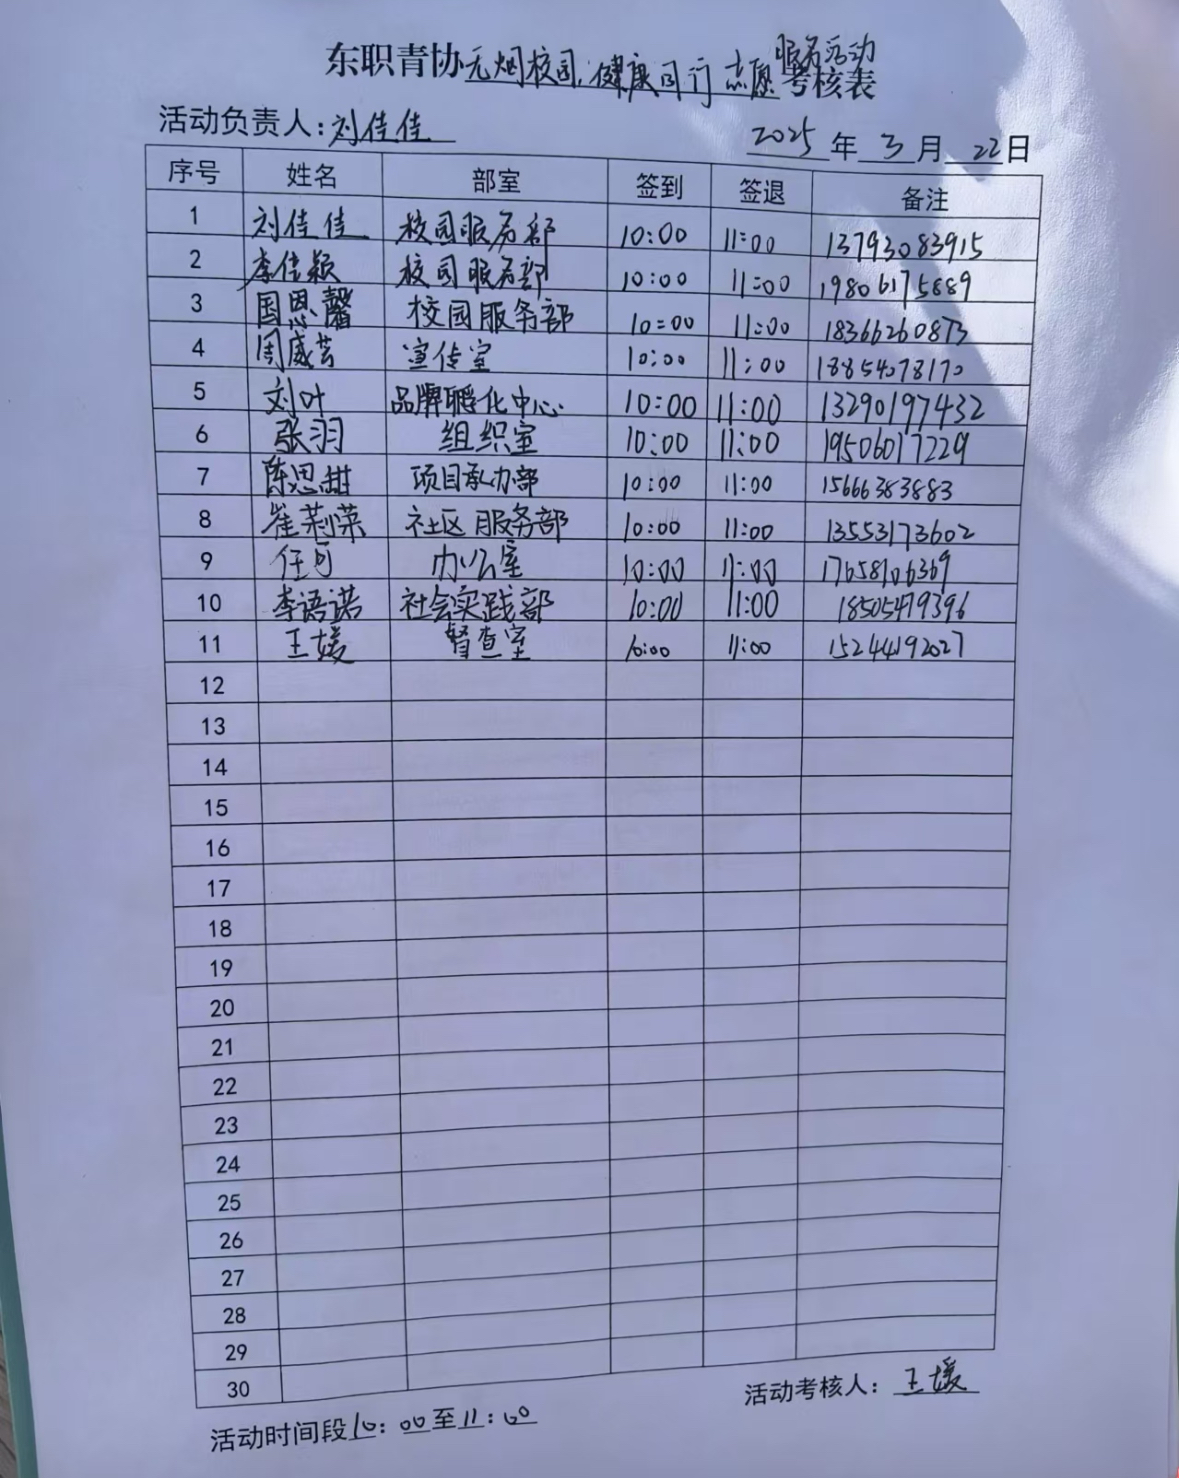 东职青协无烟校园，健康同行志愿服务活动考核表
活动负责人：刘佳佳 2025年3月22日
序号 姓名 部室 签到 签退 备注
1 刘佳佳 校园服务部 10:00 11:00 13793083915
2 李佳颖 校园服务部 10:00 11:00 19806175889
3 国恩馨 校园服务部 10:00 11:00 18366260873
4 周威芸 宣传室 10:00 11:00 18854078170
5 刘叶 品牌孵化中心 10:00 11:00 13290197432
6 张羽 组织室 10:00 11:00 19506017229
7 陈思甜 项目承办部 10:00 11:00 15666383883
8 崔莉荣 社区服务部 10:00 11:00 13553173602
9 任可 办公室 10:00 11:00 17658106369
10 李语诺 社会实践部 10:00 11:00 18505479396
11 王媛 督查室 10:00 11:00 15244192027
12
13
14
15
16
17
18
19
20
21
22
23
24
25
26
27
28
29
30
活动时间段10：00至11：00 活动考核人：王媛